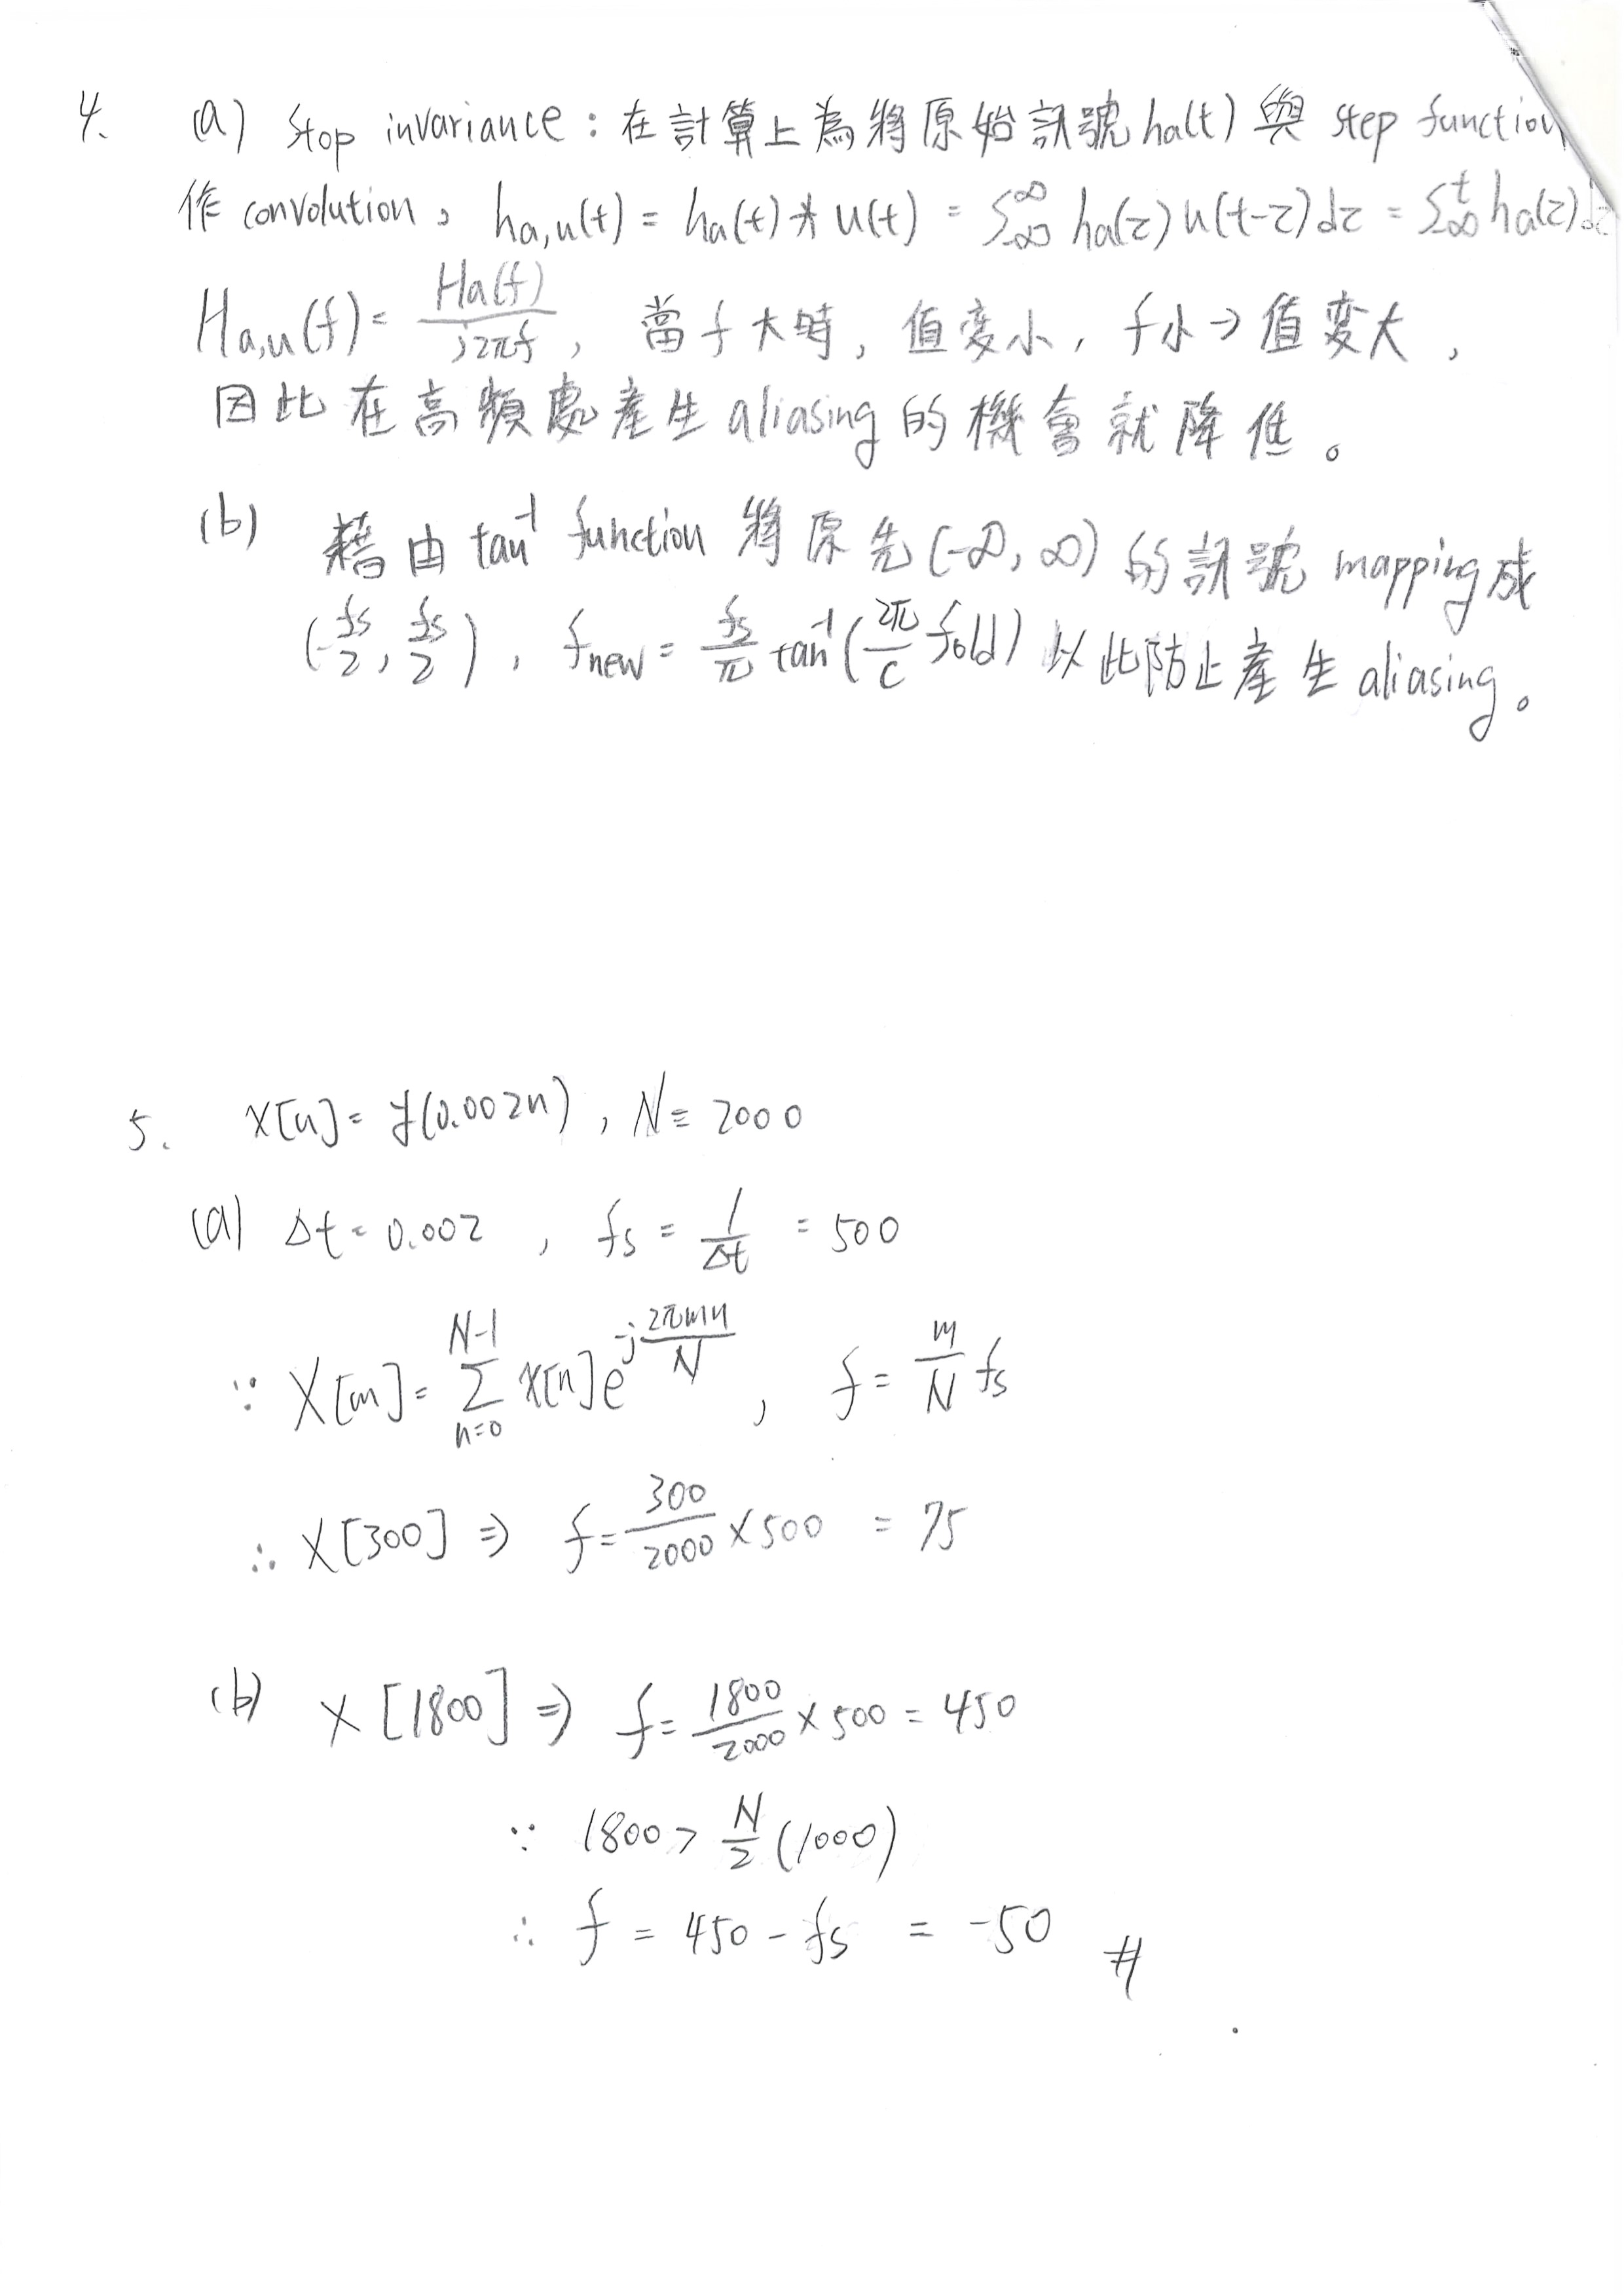 4. (a) Stop invariance : 在計算上為將原始訊號 ha(t) 與 step function
作 convolution, h_{a,u}(t) = h_a(t) * u(t) = ∫_{-∞}^{∞} h_a(τ) u(t-τ) dτ = ∫_{-∞}^{t} h_a(τ) dτ
H_{a,u}(f) = Ha(f) / j2πf , 當 f 大時, 值变小, f小→值变大,
因此在高頻處產生 aliasing 的機會就降低。
(b) 藉由 tan⁻¹ function 將原先 (-∞, ∞) 的訊號 mapping 成
(-fs/2, fs/2), f_new = fs/π tan⁻¹(2π/c f_old) 以此防止產生 aliasing。
5. x[n] = y(0.002n), N = 2000
(a) Δt = 0.002 , fs = 1/Δt = 500
∵ X[m] = Σ_{n=0}^{N-1} x[n] e^{-j 2πmn/N} , f = m/N fs
∴ X[300] ⇒ f = 300/2000 × 500 = 75
(b) X[1800] ⇒ f = 1800/2000 × 500 = 450
∵ 1800 > N/2 (1000)
∴ f = 450 - fs = -50 #